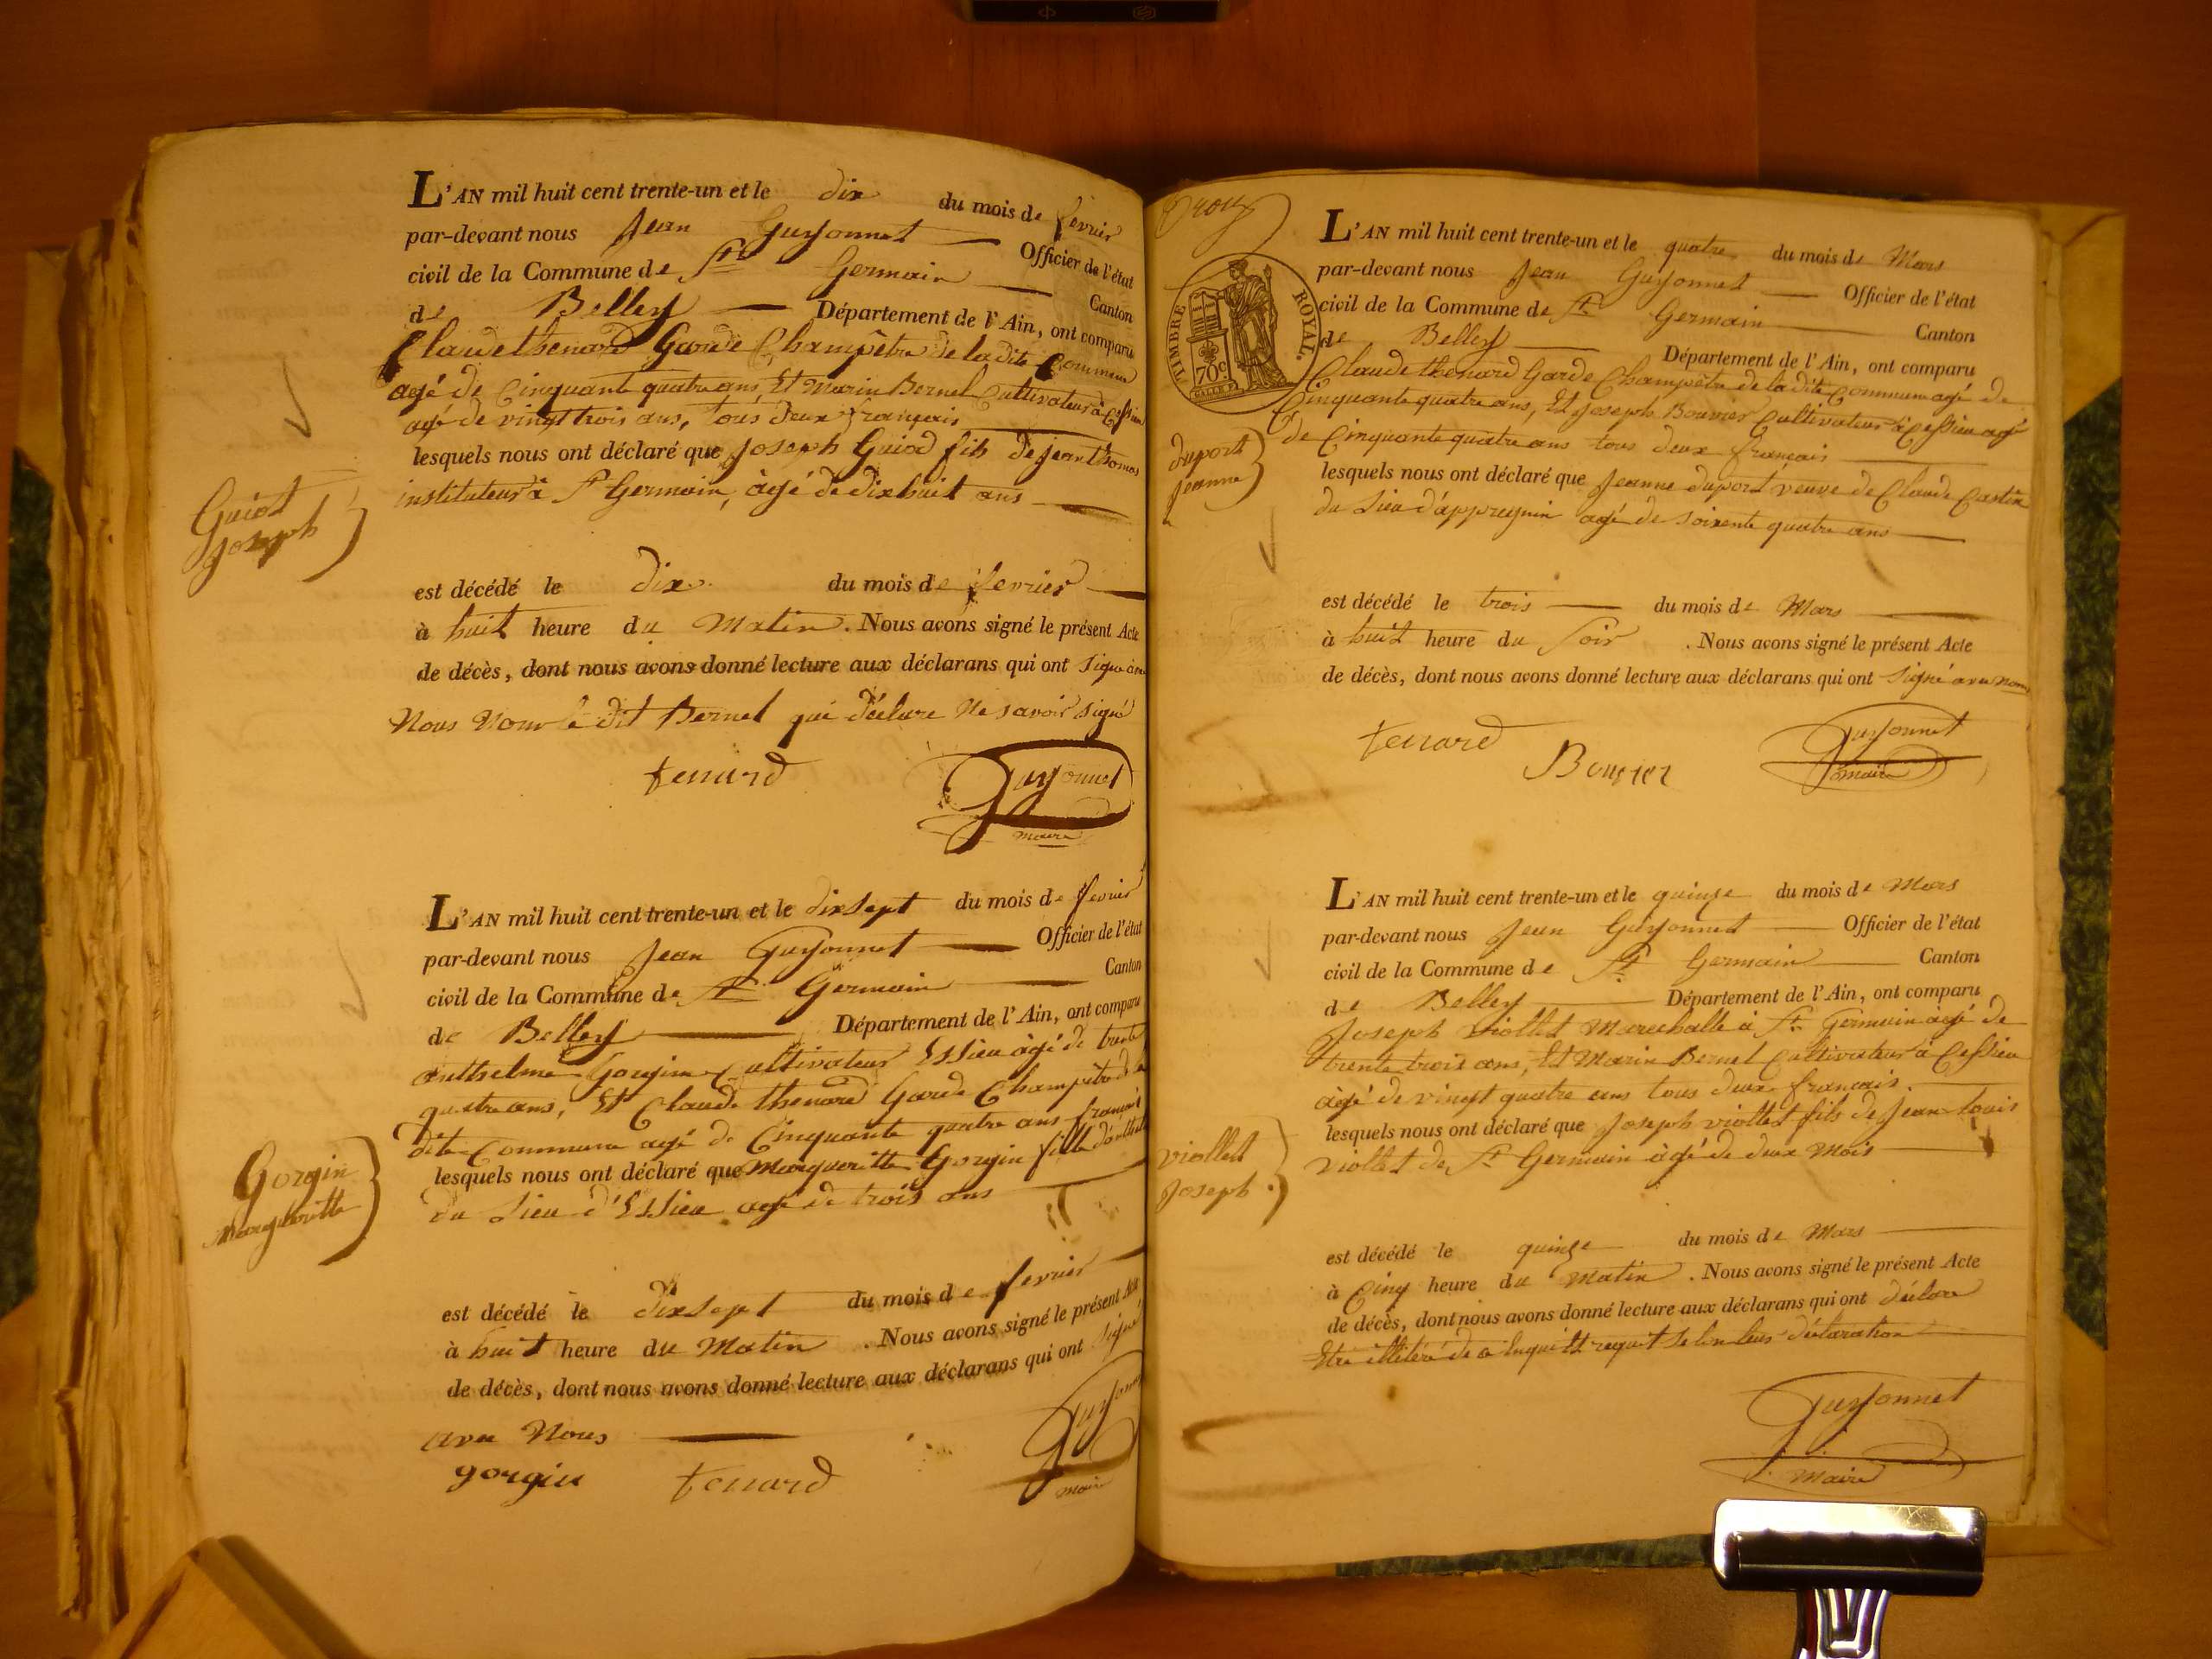 L'AN mil huit cent trente-un et le dix du mois de fevrier
par-devant nous Jean Guyonnet Officier de l'état
civil de la Commune de St Germain Canton
de Belley Département de l'Ain, ont comparu
Claude thenard Garde Champêtre de la dite Commune
agé de Cinquante quatre ans, Et Marin Bernel Cultivateur à Cessieu
agé de vingt trois ans, tous deux français
lesquels nous ont déclaré que Joseph Guiod fils de jean thomas
instituteur à St Germain, àgé de dixhuit ans
Guiot
Joseph
est décédé le dix du mois de fevrier
à huit heure du Matin. Nous avons signé le présent Acte
de décès, dont nous avons donné lecture aux déclarans qui ont signé
Nous le dit Bernel qui déclare Ne savoir signé
tenard
Guyonnet
maire
L'AN mil huit cent trente-un et le dixsept du mois de fevrier
par-devant nous Jean Guyonnet Officier de l'état
civil de la Commune de St Germain Canton
de Belley Département de l'Ain, ont comparu
anthelme Gorgin Cultivateur Essieu àgé de trente
quatre ans, Et Claude thenard Garde Champêtre de la
dite Commune agé de Cinquante quatre ans français
lesquels nous ont déclaré que Margueritte Gorgin fille
du Lieu d'Essieu agé de trois ans
Gorgin
Margueritte
est décédé le dixsept du mois de fevrier
à huit heure du Matin. Nous avons signé le présent Acte
de décès, dont nous avons donné lecture aux déclarans qui ont signé
avec Nous
gorgin tenard
Guyonnet
maire
TIMBRE ROYAL.
70c.
L'AN mil huit cent trente-un et le quatre du mois de Mars
par-devant nous Jean Guyonnet Officier de l'état
civil de la Commune de St Germain Canton
de Belley Département de l'Ain, ont comparu
Claude thenard Garde Champêtre de la dite Commune agé de
Cinquante quatre ans, Et Joseph Bouvier Cultivateur à Cessieu agé
de Cinquante quatre ans tous deux français
lesquels nous ont déclaré que Jeanne duport veuve de Claude
du Lieu d'appregnin agé de soixente quatre ans
duport
Jeanne
est décédé le trois du mois de Mars
à huit heure du soir. Nous avons signé le présent Acte
de décès, dont nous avons donné lecture aux déclarans qui ont signé avec nous
tenard
Bouvier
Guyonnet
maire
L'AN mil huit cent trente-un et le quinze du mois de Mars
par-devant nous Jean Guyonnet Officier de l'état
civil de la Commune de St Germain Canton
de Belley Département de l'Ain, ont comparu
Joseph viollet Marechalle à St Germain àgé de
trente trois ans, Et Marin Bernel Cultivateur à Cessieu
àgé de vingt quatre ans tous deux français.
lesquels nous ont déclaré que Joseph viollet fils de Jean Louis
viollet de St Germain àgé de deux mois
viollet
Joseph
est décédé le quinze du mois de Mars
à Cinq heure du Matin. Nous avons signé le présent Acte
de décès, dont nous avons donné lecture aux déclarans qui ont déclare
Etre illitéré de a Enquitt requit selon leur déclaration
Guyonnet
Maire